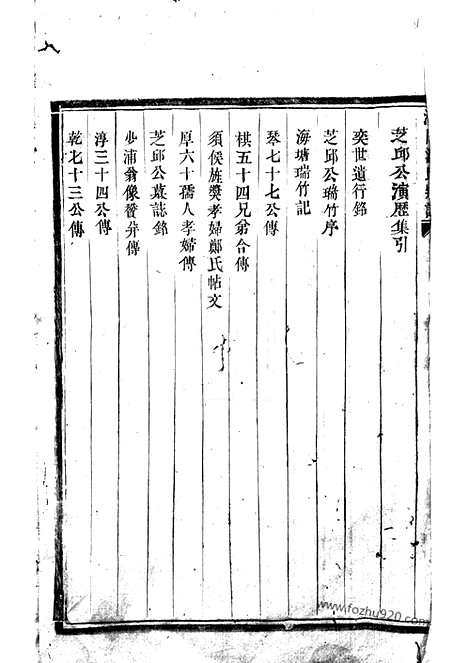 芝邱公演歷集引
奕世遺行銘
芝邱公瑞竹序
海塘瑞竹記
琴七十七公傳
棋五十四兄弟合傳
須侯旌獎孝婦鄭氏帖文
厚六十孺人孝婦傳
芝邱公墓誌銘
少浦翁像贊并傳
淳三十四公傳
乾七十三公傳
www.fozhu920.com